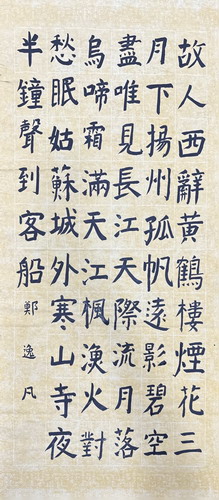 故人西辭黃鶴樓煙花三
月下揚州孤帆遠影碧空
盡唯見長江天際流月落
烏啼霜滿天江楓漁火對
愁眠姑蘇城外寒山寺夜
半鐘聲到客船
鄭逸凡